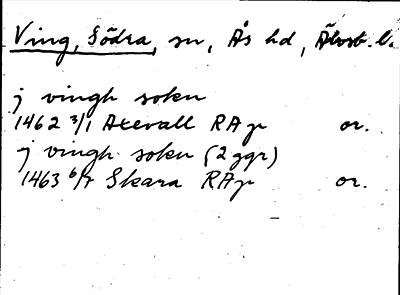 Ving, Södra, sn, Ås hd, Älvsb. l.
j vingh sokn
1462 3/1 Axevall RAp or.
j vingh sokn (2 ggr)
1463 6/7 Skara RAp or.